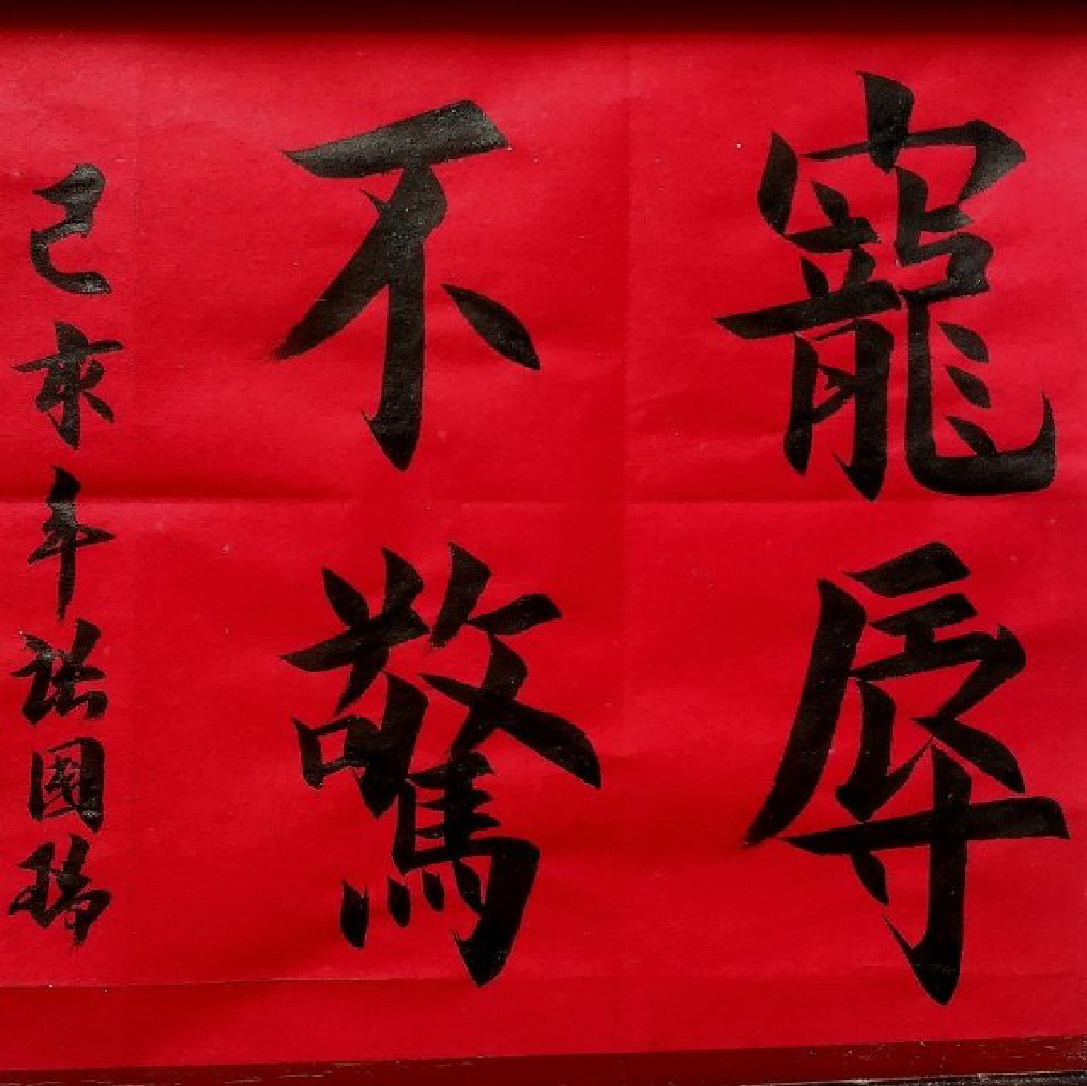 寵辱
不驚
己亥年張國瑞